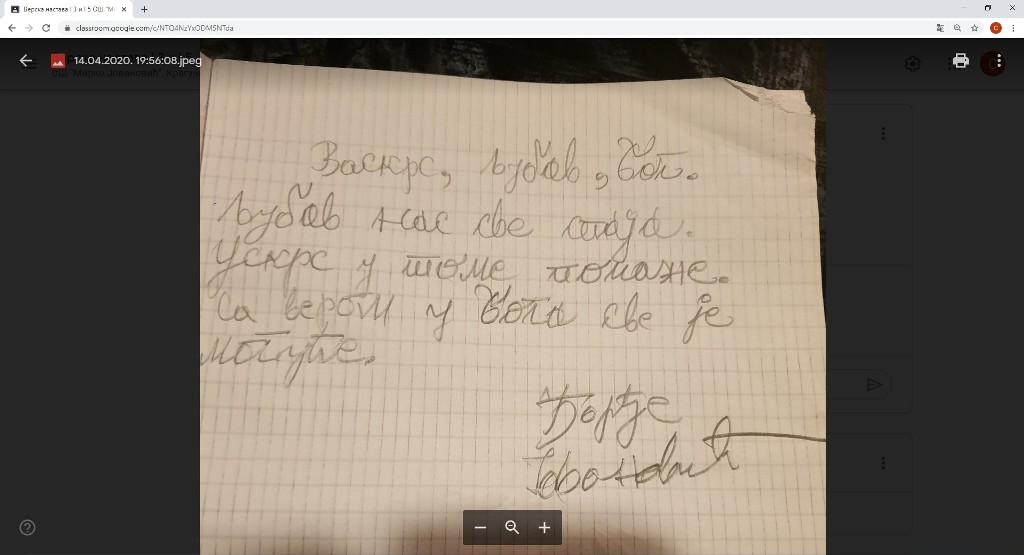 Верска настава I 3 и I 5 ОШ "М
classroom.google.com/c/NTQ4NzYxODM5NTda
14.04.2020. 19:56:08.jpeg
Васкрс, љубав, Бог.
Љубав нас све спаја.
Ускрс у томе помаже.
Са вером у Бога све је
могуће.
Ђорђе